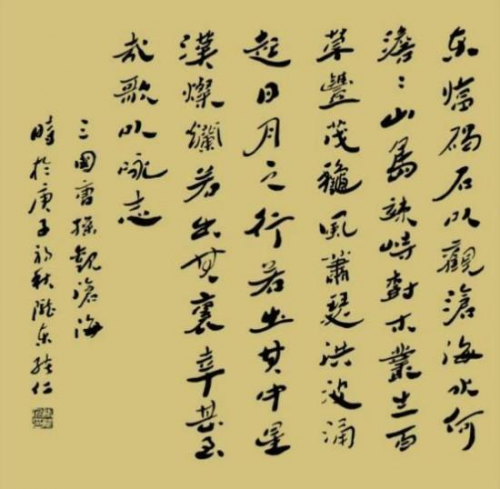 东临碣石以觀滄海水何
澹:山島竦峙树木叢生百
草豐茂龝風蕭瑟洪波涌
起日月之行若出其中星
漢燦爛若出其裏幸甚至
哉歌以咏志
三国曹操觀滄海
時於庚子初秋隴东仁